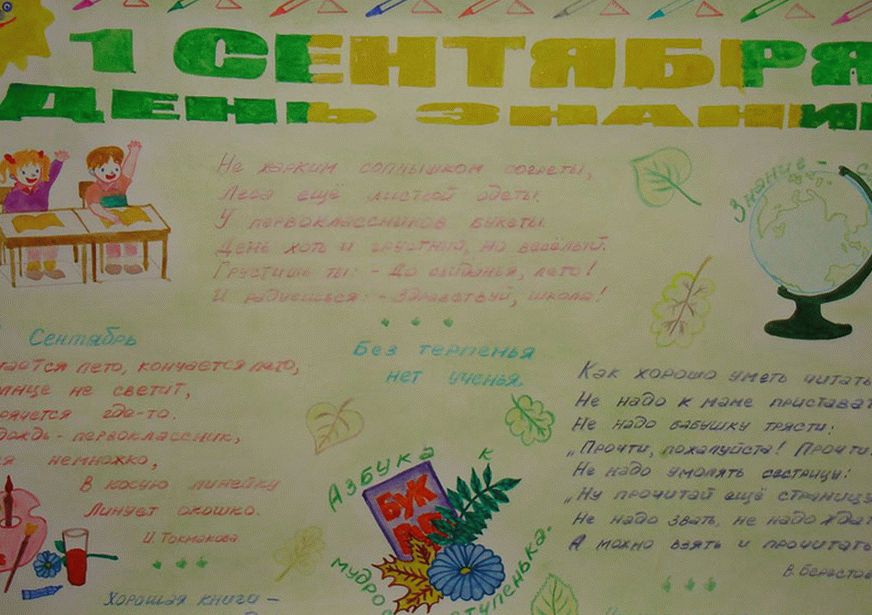 1 СЕНТЯБРЯ
ДЕНЬ ЗНАНИ
Не жарким солнышком согреты,
Леса ещё листвой одеты.
У первоклассников букеты.
День хоть и грустный, но весёлый.
Грустишь ты: - До свиданья, лето!
И радуешься: - Здравствуй, школа!
Знание -
Сентябрь
чается лето, кончается лето,
лнце не светит,
рячется где-то.
дождь - первоклассник,
я немножко,
В косую линейку
Линует окошко.
И. Токмакова.
Без терпенья
нет ученья.
Как хорошо уметь читать
Не надо к маме приставать
Не надо бабушку трясти:
„Прочти, пожалуйста! Прочти
Не надо умолять сестрицу:
„Ну прочитай ещё страницу
Не надо звать, не надо ждат
А можно взять и прочитать
В. Берестов
Азбука к
мудро ступенька.
БУК
Хорошая книга -